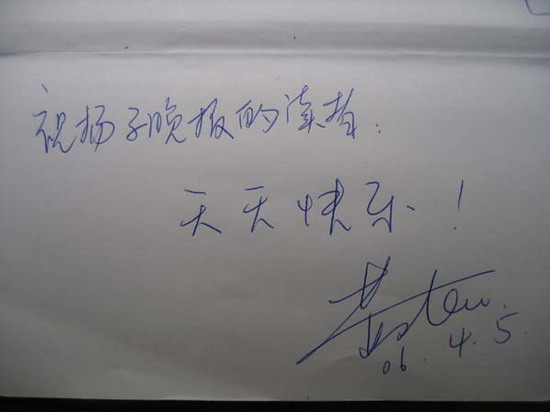 祝扬子晚报的读者.
天天快乐!
06.4.5.